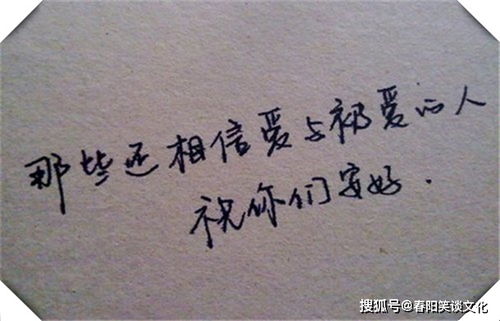 那些还相信爱与被爱的人
祝你们安好.
搜狐号@春阳笑谈文化